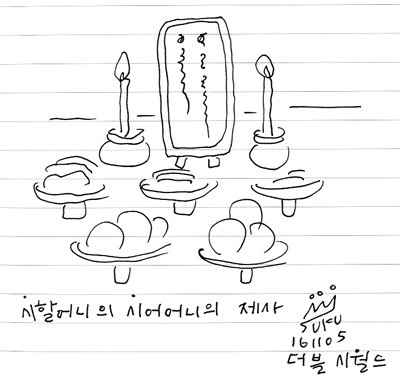 시할머니의 시어머니의 제사
SUKU
161105
더블 시월드